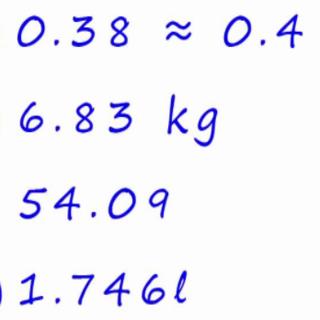 0.38 ≈ 0.4
6.83 kg
54.09
) 1.746l